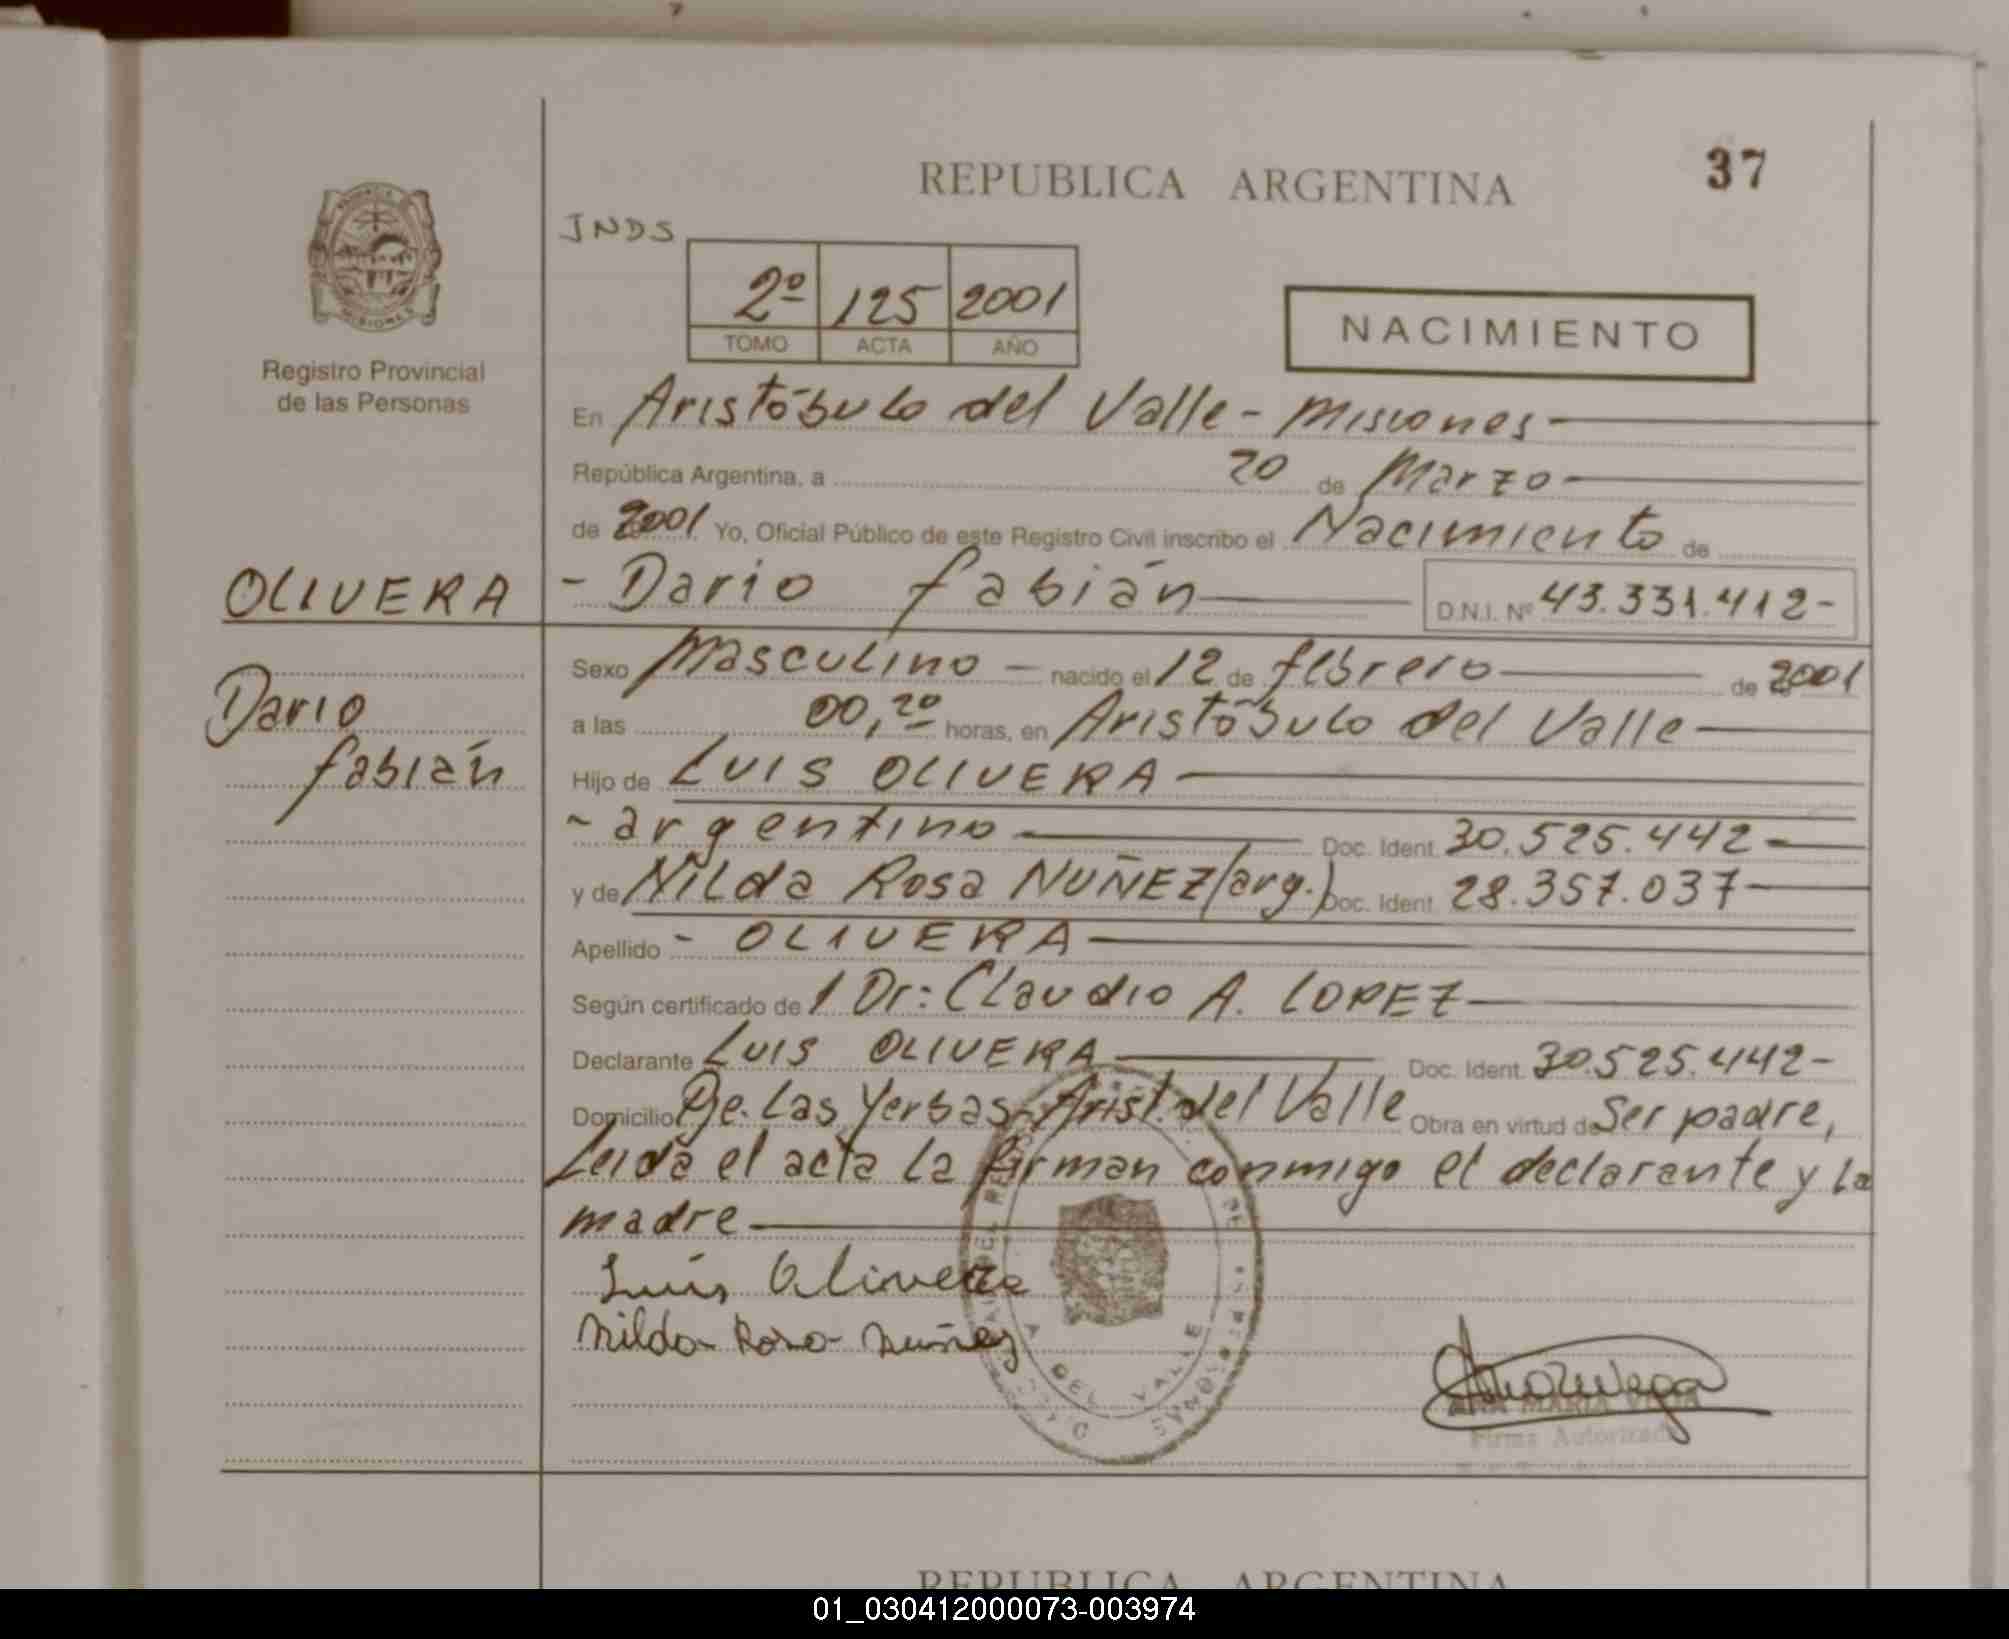 37
REPUBLICA ARGENTINA
JNDS
2º 125 2001
TOMO ACTA AÑO
NACIMIENTO
MISIONES
Registro Provincial
de las Personas
En Aristóbulo del Valle - Misiones
República Argentina, a 20 de Marzo
de 2001 Yo, Oficial Público de este Registro Civil inscribo el Nacimiento de
OLIVERA - Dario Fabián D.N.I. Nº 43.331.412-
Dario
Fabián
Sexo Masculino - nacido el 12 de febrero de 2001
a las 00,20 horas, en Aristóbulo del Valle
Hijo de LUIS OLIVERA
- argentino Doc. Ident. 30.525.442-
y de Nilda Rosa NUÑEZ (arg.) Doc. Ident. 28.357.037
Apellido - OLIVERA
Según certificado de 1 Dr: Claudio A. LOPEZ
Declarante LUIS OLIVERA Doc. Ident. 30.525.442-
Domicilio Pje. Las Yerbas, Arist. del Valle Obra en virtud de Ser padre,
Leida el acta la firman conmigo el declarante y la
madre
Luis Olivera
Nilda Rosa Nuñez
DEL VALLE
ANA MARIA VEGA
Firma Autorizada
REPUBLICA ARGENTINA
01_030412000073-003974